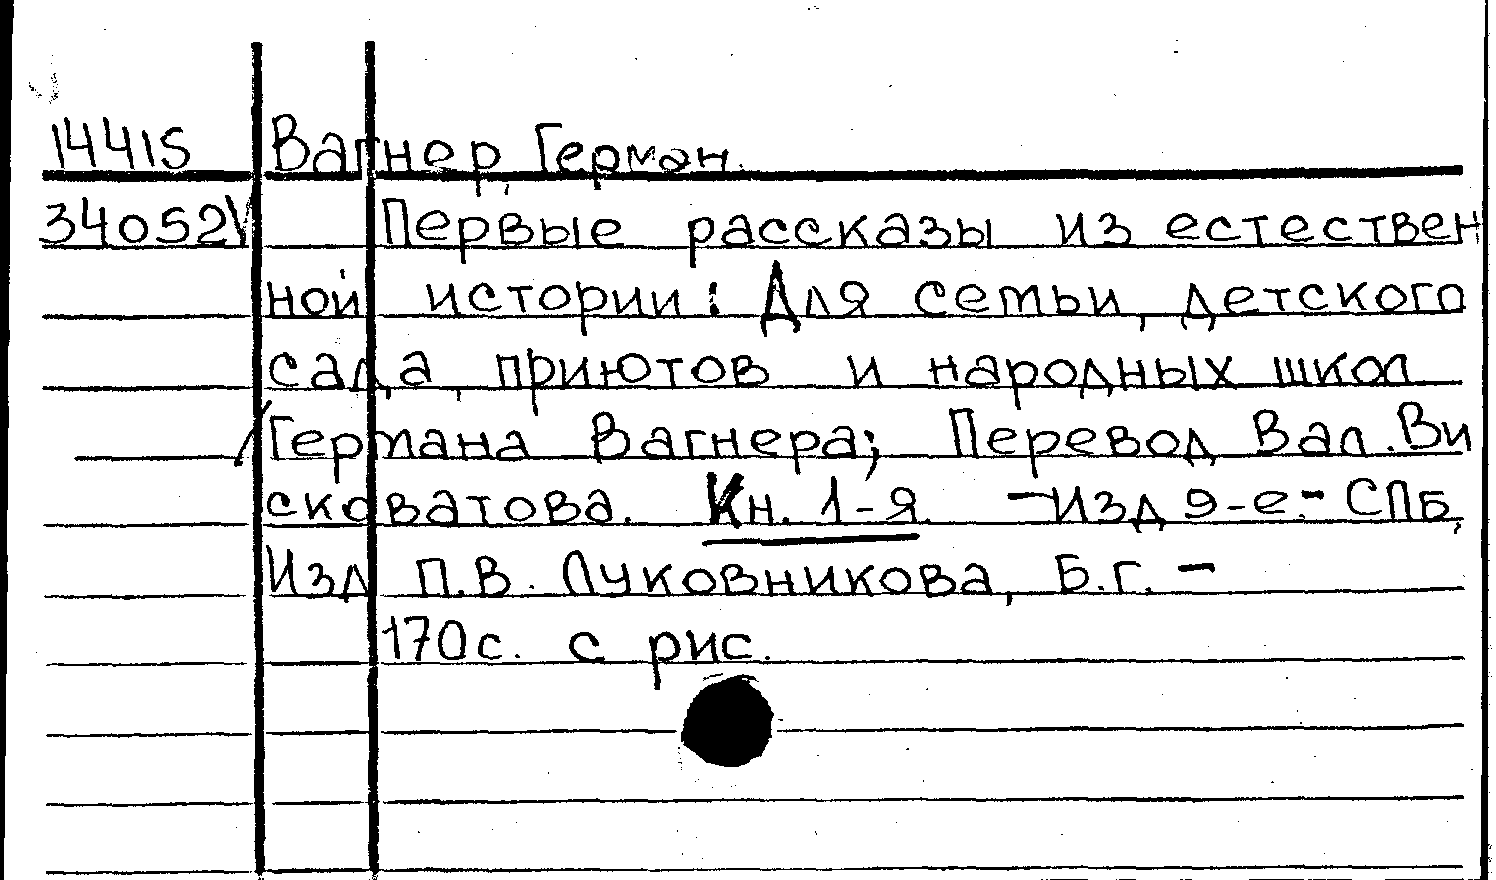 14415 Вагнер, Герман.
34052V Первые рассказы из естествен
ной истории: Для семьи, детского
сада, приютов и народных школ
/Германа Вагнера; Перевод Вал. Ви
сковатова. Кн. 1-я. - Изд 9-е. - СПб,
Изд П.В. Луковникова, Б.г. -
170с. с рис.